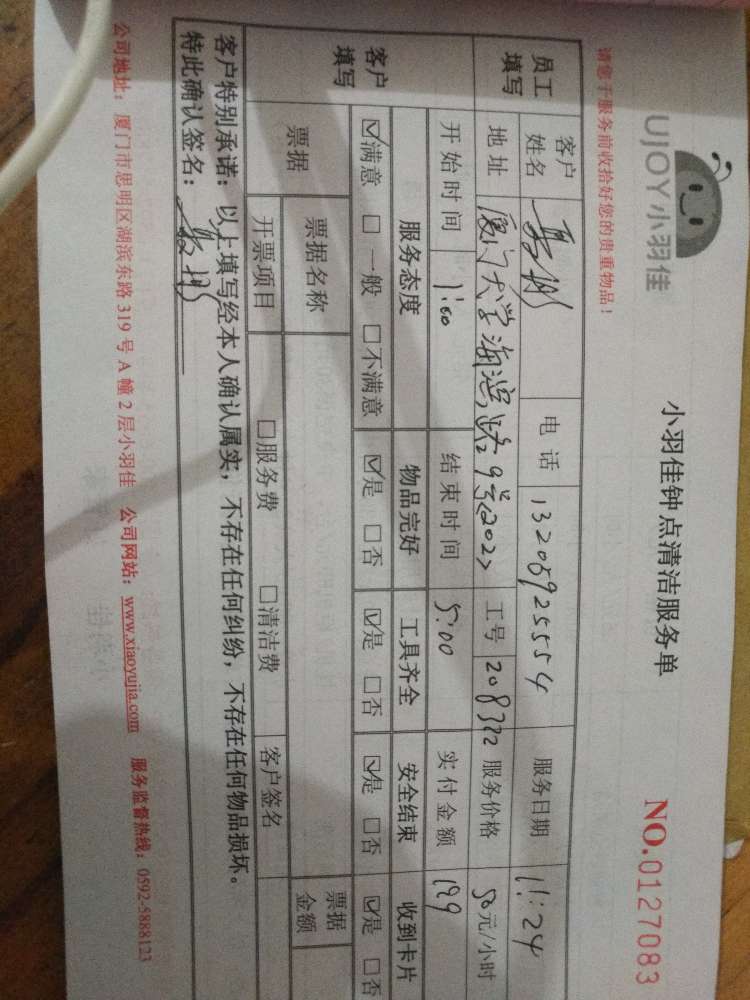 UJOY小羽佳
小羽佳钟点清洁服务单
NO.0127083
请您于服务前收拾好您的贵重物品！
员工填写 客户姓名 电话 13205925554 服务日期 11:24
地址 厦门大学海滨 工号 208322 服务价格 50元/小时
开始时间 1:00 结束时间 5:00 实付金额 199
客户填写 服务态度 物品完好 工具齐全 安全结束 收到卡片
☑满意 □一般 □不满意 ☑是 □否 ☑是 □否 ☑是 □否 ☑是 □否
票据 票据名称 票据金额
开票项目 □服务费 □清洁费 客户签名
客户特别承诺：以上填写经本人确认属实，不存在任何纠纷，不存在任何物品损坏。
特此确认签名：
公司地址：厦门市思明区湖滨东路319号A幢2层小羽佳 公司网站：www.xiaoyujia.com 服务监督热线：0592-5888123